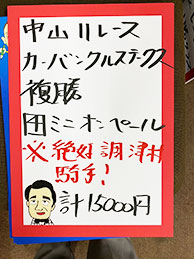 中山11レース
カーバンクルステークス
複勝
団ミニオンペール
※絶好調津村
騎手!
計15000円